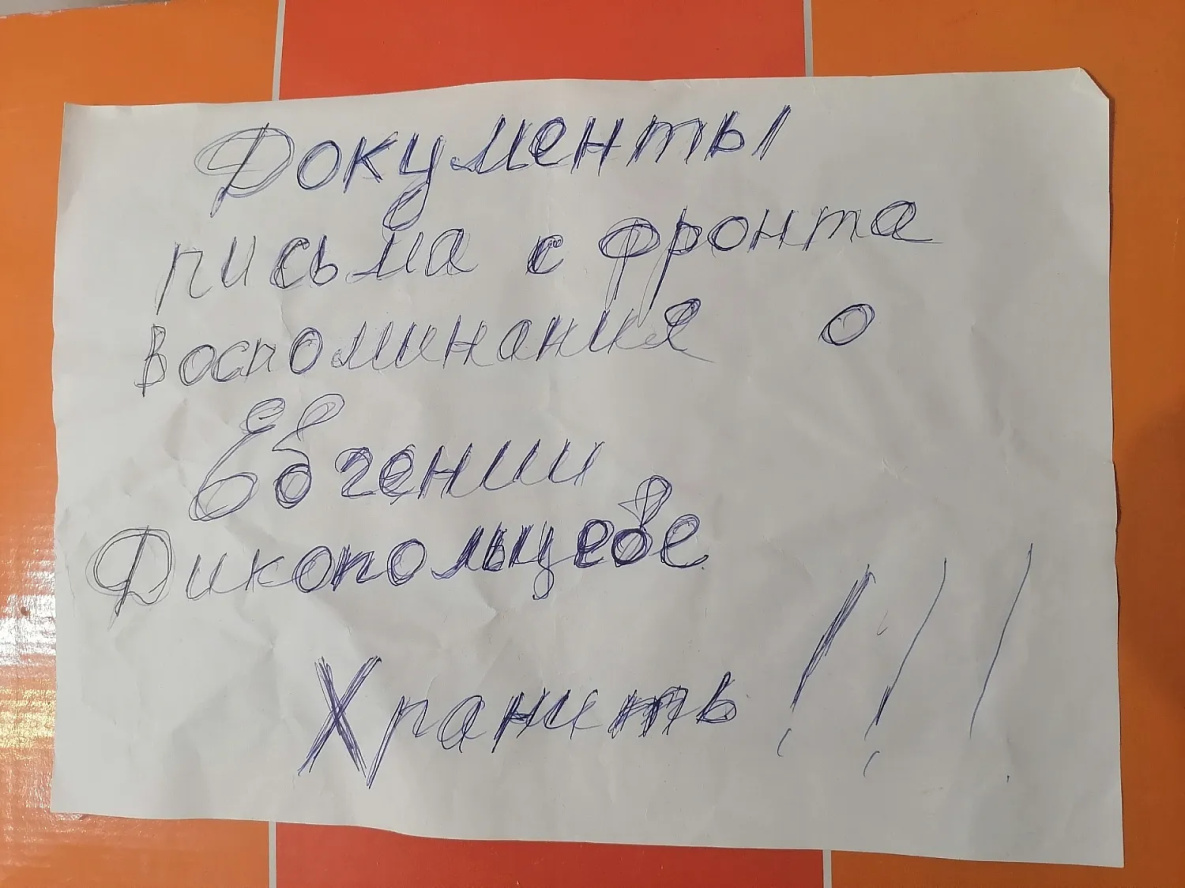 Документы
письма с фронта
воспоминания о
Евгении
Дикопольцеве
Хранить!!!